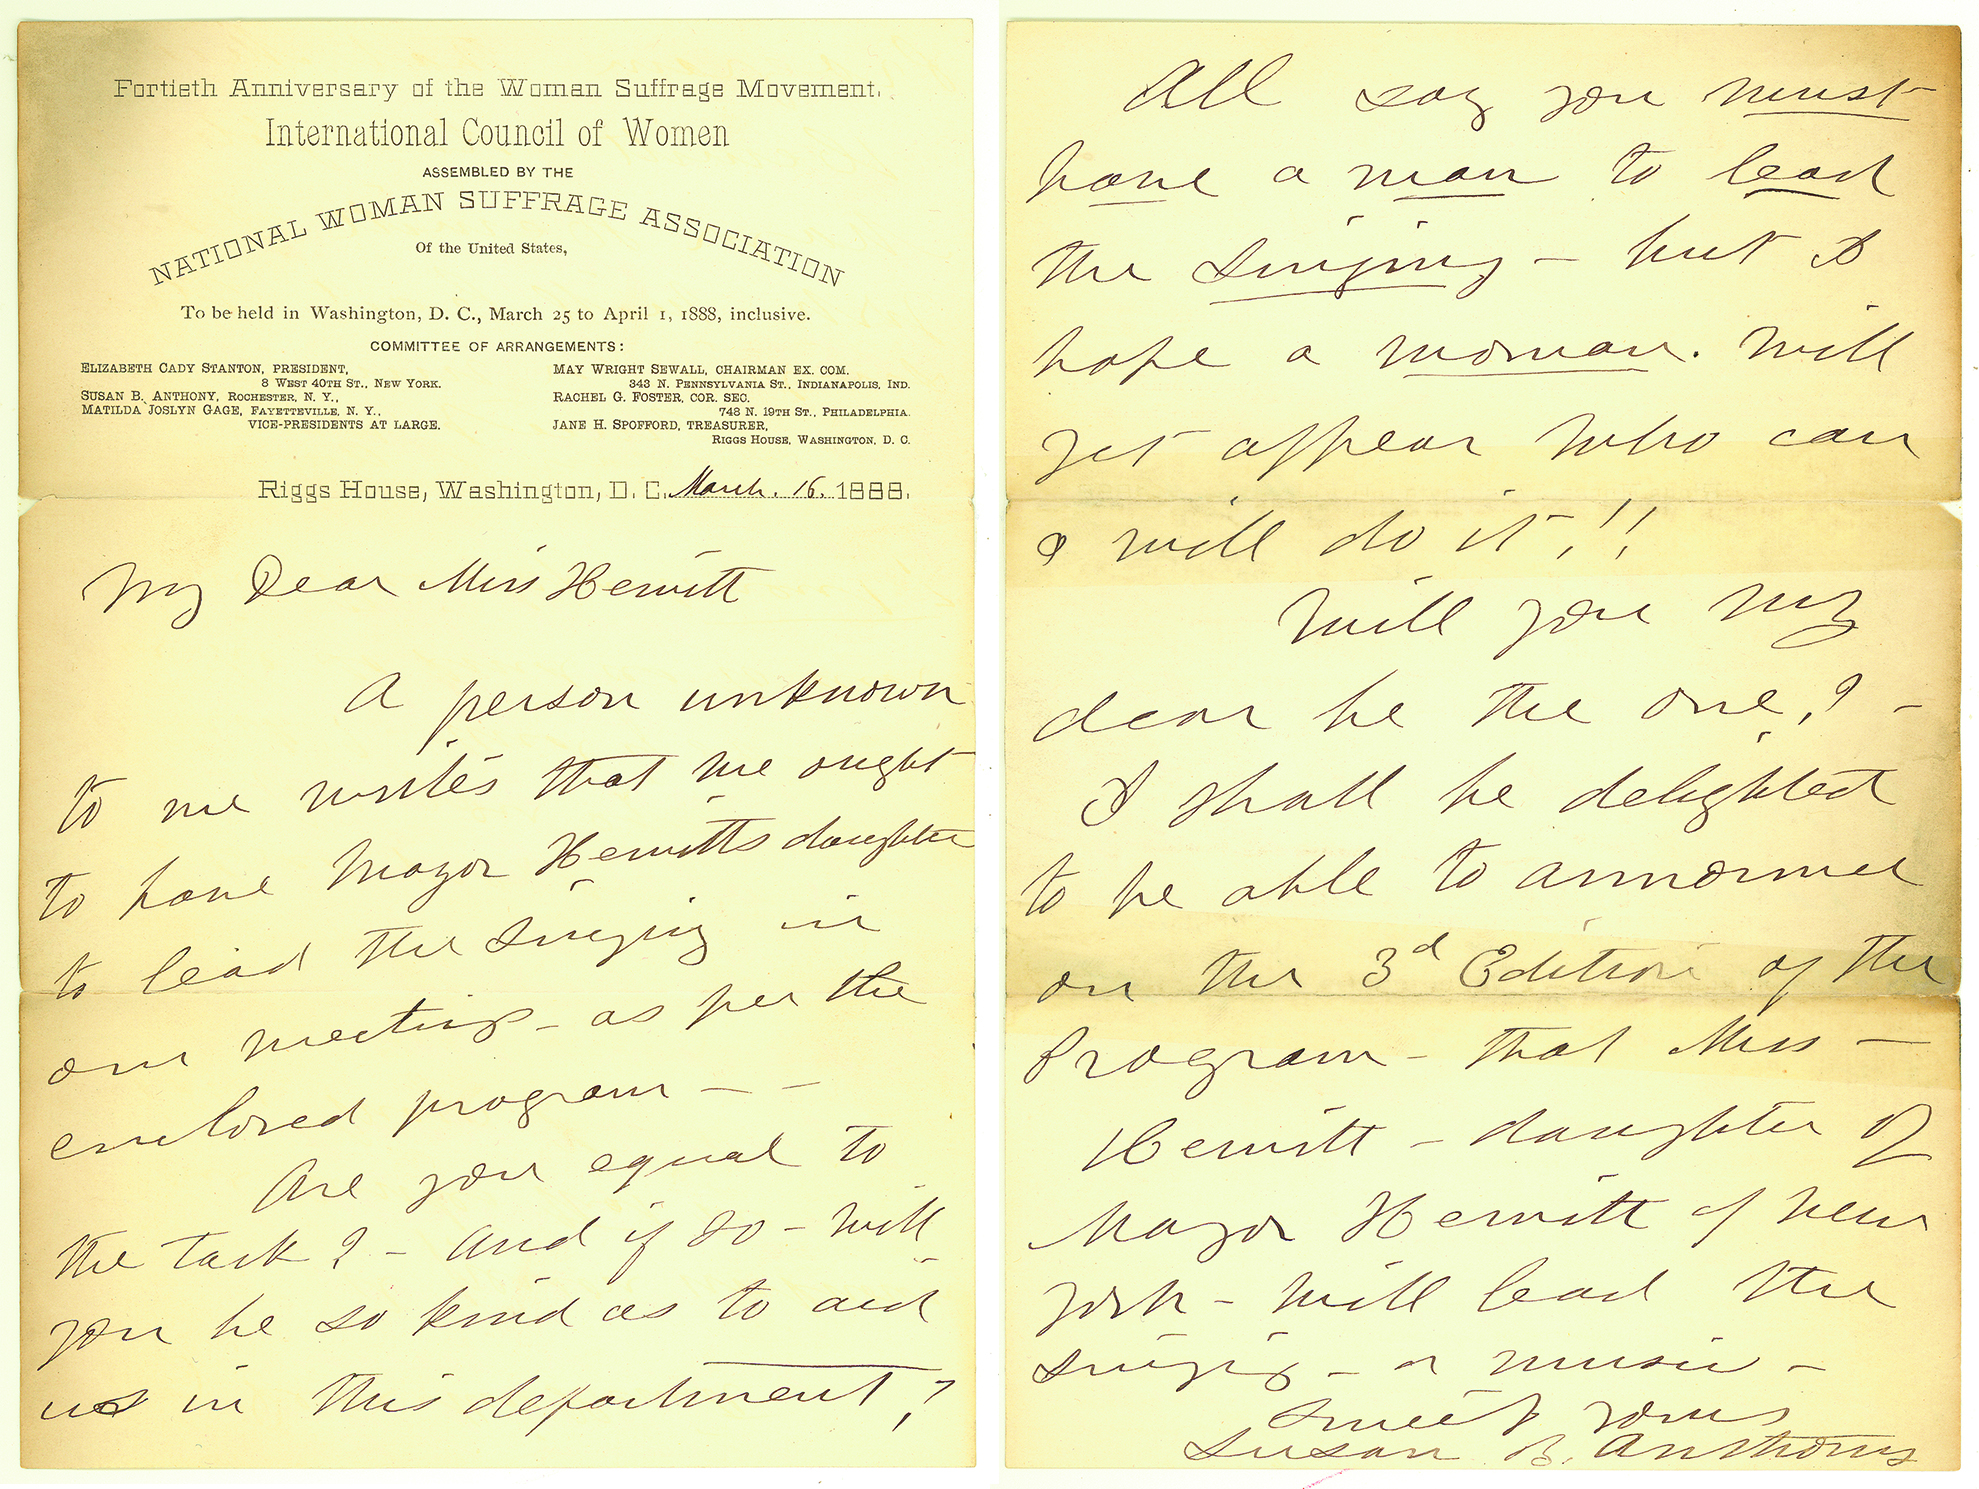 Fortieth Anniversary of the Woman Suffrage Movement.
International Council of Women
ASSEMBLED BY THE
NATIONAL WOMAN SUFFRAGE ASSOCIATION
Of the United States,
To be held in Washington, D. C., March 25 to April 1, 1888, inclusive.
COMMITTEE OF ARRANGEMENTS:
ELIZABETH CADY STANTON, PRESIDENT,
8 WEST 40TH ST., NEW YORK.
SUSAN B. ANTHONY, ROCHESTER, N. Y.,
MATILDA JOSLYN GAGE, FAYETTEVILLE, N. Y.,
VICE-PRESIDENTS AT LARGE.
MAY WRIGHT SEWALL, CHAIRMAN EX. COM.
343 N. PENNSYLVANIA ST., INDIANAPOLIS, IND.
RACHEL G. FOSTER, COR. SEC.
748 N. 19TH ST., PHILADELPHIA.
JANE H. SPOFFORD, TREASURER,
RIGGS HOUSE, WASHINGTON, D. C.
Riggs House, Washington, D. C. March. 16. 1888.
My Dear Miss Hewitt
A person unknown
to me writes that we ought
to have Mayor Hewitts daughter
to lead the singing in
our meetings - as per the
enclosed program - -
Are you equal to
the task? - And if so - will
you be so kind as to aid
us in this department?
All say you must
have a man to lead
the singing - but I
hope a woman. will
yet appear who can
& will do it!!
Will you my
dear be the one? -
I shall be delighted
to be able to announce
on the 3d Edition of the
Program - that Miss -
Hewitt - daughter of
Mayor Hewitt of New
York - will lead the
singing - or music -
Susan B. Anthony